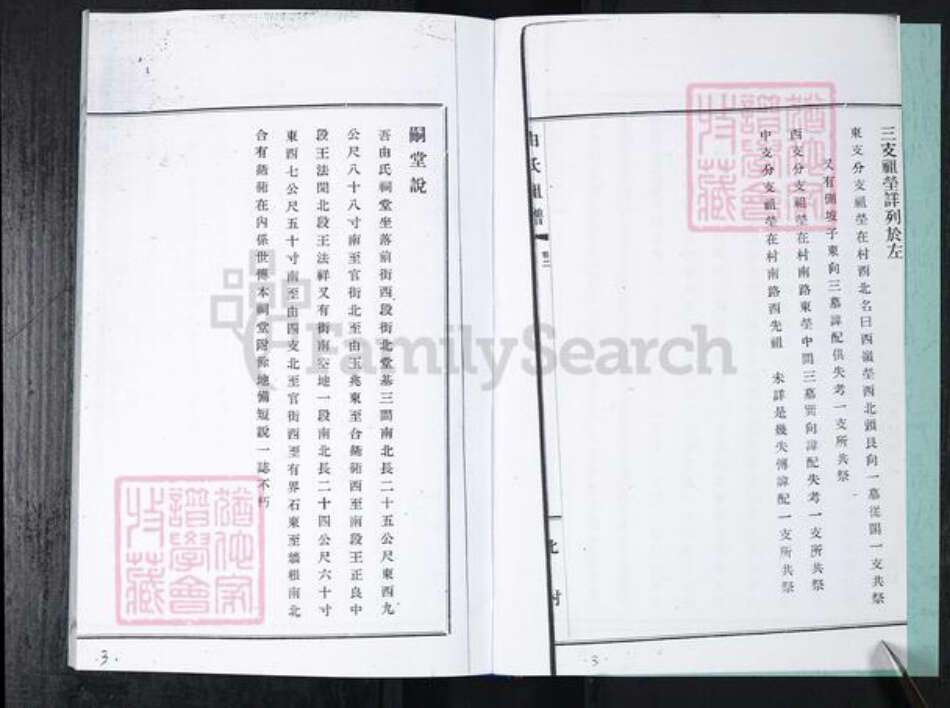 三支祖塋詳列於左
東支分支祖塋在村西北名曰西嶺塋西北頭艮向一墓從闊一支共祭
又有頭坡子東向三墓諱配俱失考一支所共祭
西支分支祖塋在村南路東塋中間三墓巽向諱配失考一支所共祭
中支分支祖塋在村南路西先祖 未詳是幾失傳諱配一支所共祭
由氏祖譜
卷二
北村
3
嗣堂說
吾由氏祠堂坐落前街西段街北堂基三間南北長二十五公尺東西九
公尺八十八寸南至官街北至由玉兆東至合衚衕西至南段王正良中
段王法閏北段王法祥又有街南空地一段南北長二十四公尺六十寸
東西七公尺五十寸南至由四支北至官街西至有界石東至牆根南北
合有衚衕在內係世傳本祠堂附餘地備短說一誌不朽
3
猶他家譜學會收藏
猶他家譜學會收藏
FamilySearch